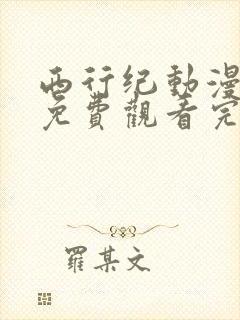 西行纪動漫
免費觀看完
羅某文